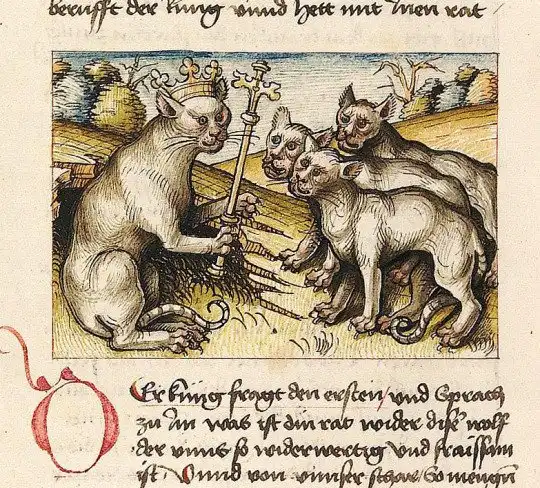 berufft der küng vnnd hett mit inen rat /
DEr küng fragt den ersten / vnd Sprach
zu im was ist din rat wider dise wolf
der vnns so widerwertig vnd fraissam
ist / Vnnd von vnnser schar / So mengen